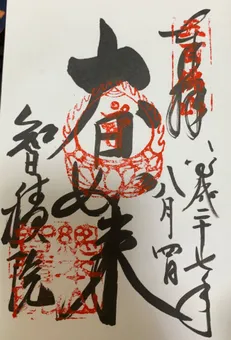 奉拝
平成二十七年
八月四日
大日如来
智積院